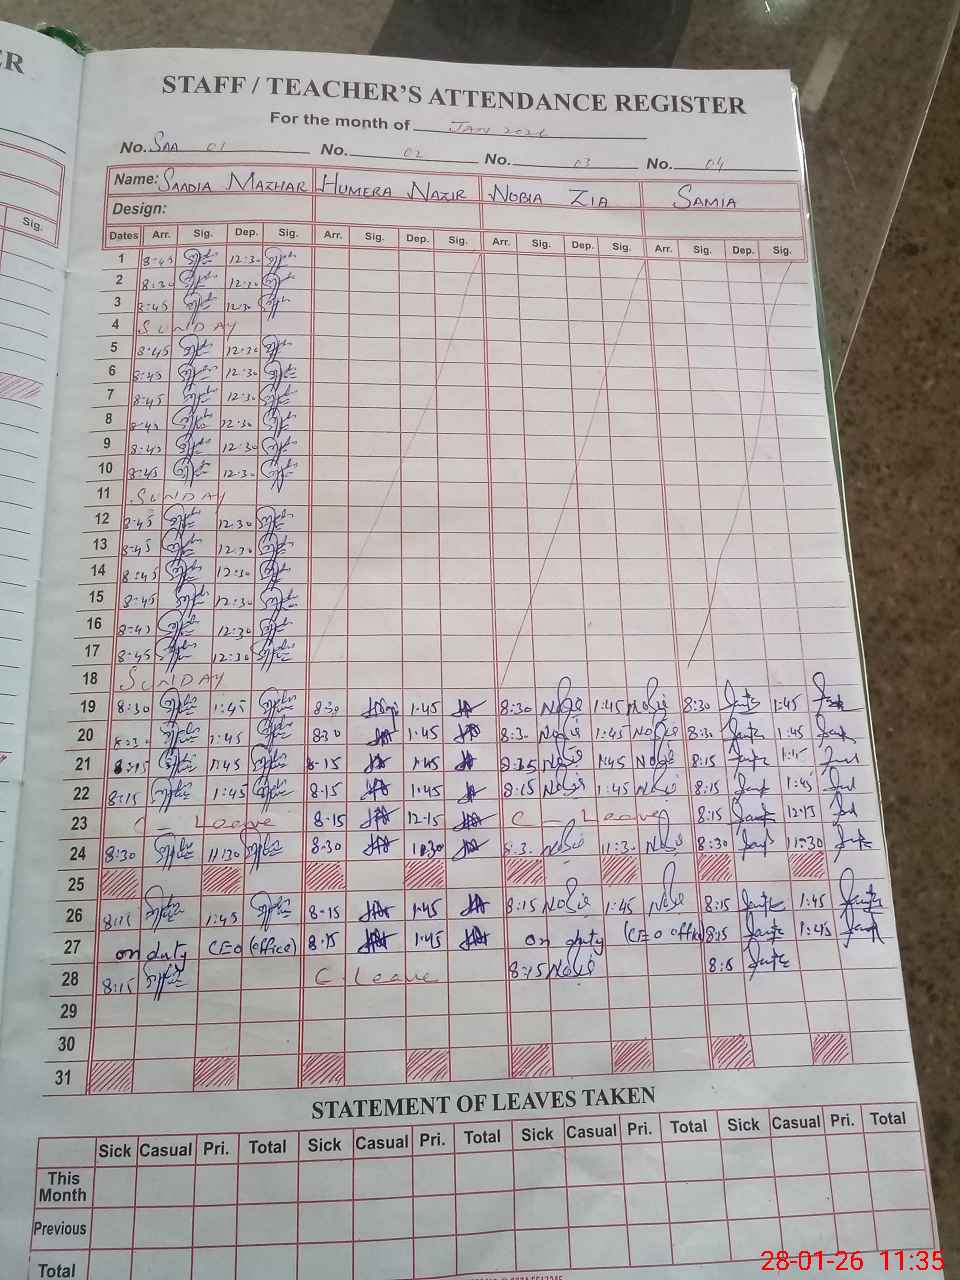 ER
Sig.
STAFF / TEACHER'S ATTENDANCE REGISTER
For the month of JAN 2026
No. SAA 01 No. 02 No. 03 No. 04
Name: SAADIA MAZHAR HUMERA NAZIR NOBIA ZIA SAMIA
Design:
Dates Arr. Sig. Dep. Sig. Arr. Sig. Dep. Sig. Arr. Sig. Dep. Sig. Arr. Sig. Dep. Sig.
1 8:45 12:30
2 8:30 12:30
3 8:45 12:30
4 SUNDAY
5 8:45 12:30
6 8:45 12:30
7 8:45 12:30
8 8:45 12:30
9 8:45 12:30
10 8:45 12:30
11 SUNDAY
12 8:45 12:30
13 8:45 12:30
14 8:45 12:30
15 8:45 12:30
16 8:45 12:30
17 8:45 12:30
18 SUNDAY
19 8:30 1:45 8:30 1:45 8:30 Nobia 1:45 Nobia 8:30 1:45
20 8:30 1:45 8:30 1:45 8:30 Nobia 1:45 Nobia 8:30 1:45
21 8:15 1:45 8-15 1:45 8:15 Nobia 1:45 Nobia 8:15 1:45
22 8:15 1:45 8-15 1:45 8:15 Nobia 1:45 Nobia 8:15 1:45
23 C - Leave 8-15 12-15 C - Leave 8:15 12:15
24 8:30 11:30 8:30 11:30 8:30 Nobia 11:30 Nobia 8:30 11:30
25
26 8:15 1:45 8-15 1:45 8:15 Nobia 1:45 Nobia 8:15 1:45
27 on duty CEO (office) 8:15 1:45 on duty (CEO office) 8:15 1:45
28 8:15 C-Leave 8:15 Nobia
29
30
31
STATEMENT OF LEAVES TAKEN
Sick Casual Pri. Total Sick Casual Pri. Total Sick Casual Pri. Total Sick Casual Pri. Total
This Month
Previous
Total
28-01-26 11:35